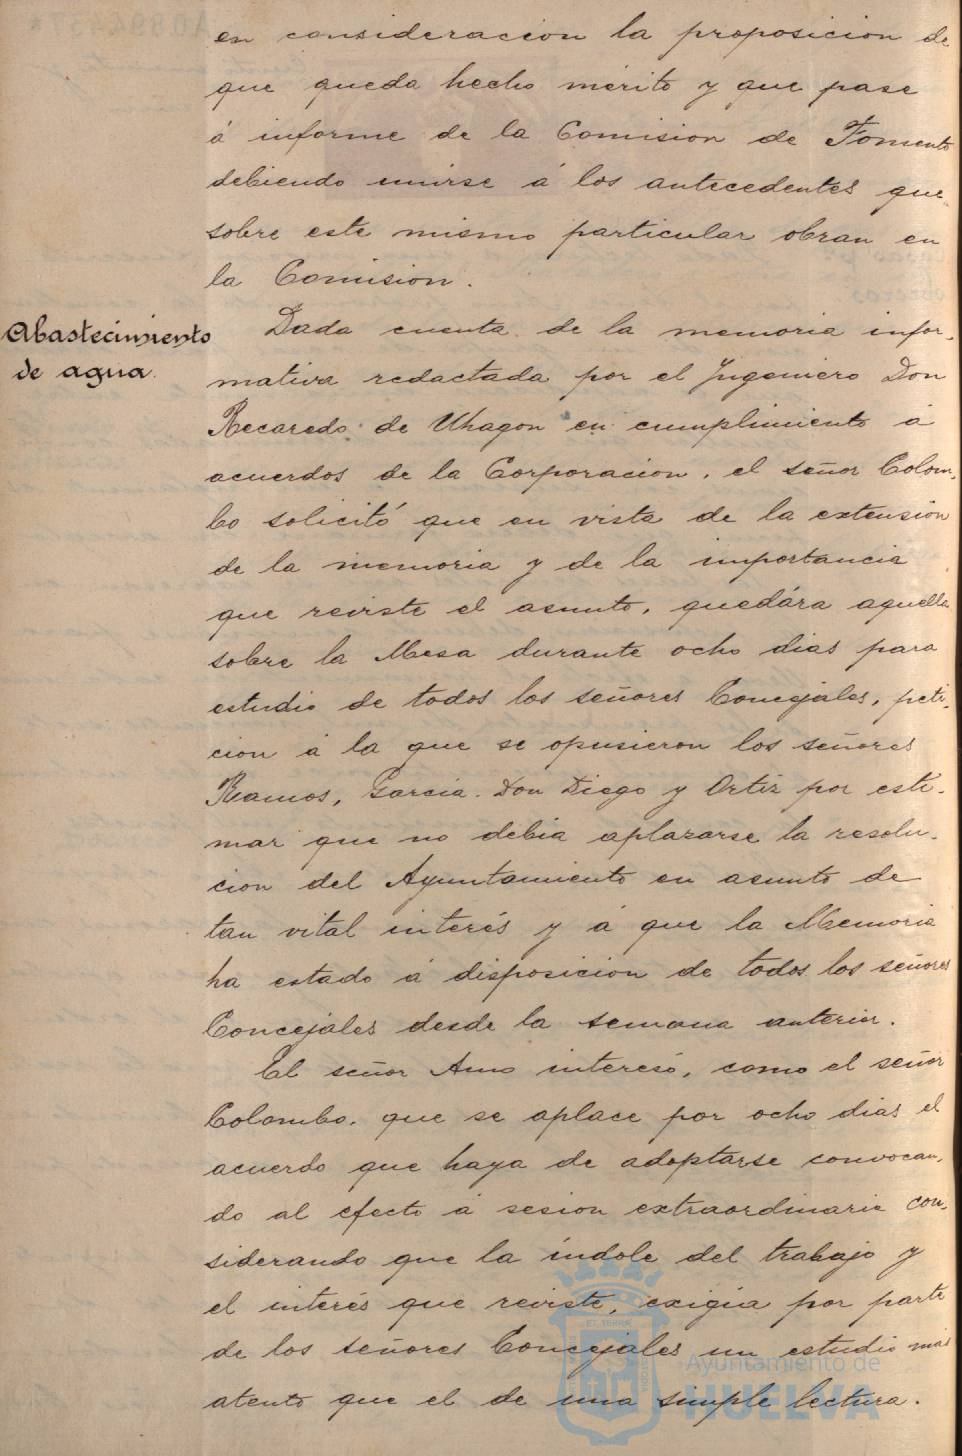 en consideracion la proposicion de
que queda hecho mérito y que pase
á informe de la Comision de Fomento
debiendo unirse á los antecedentes que
sobre este mismo particular obran en
la Comision.
Abastecimiento
de agua.
Dada cuenta de la memoria infor-
mativa redactada por el Ingeniero Don
Recaredo de Uhagon en cumplimiento á
acuerdos de la Corporacion, el señor Colom-
bo solicitó que en vista de la extension
de la memoria y de la importancia
que reviste el asunto, quedára aquella
sobre la Mesa durante ocho dias para
estudio de todos los señores Concejales, peti-
cion á la que se opusieron los señores
Ramos, Garcia Don Diego y Ortiz por esti-
mar que no debia aplazarse la resolu-
cion del Ayuntamiento en asunto de
tan vital interés y á que la Memoria
ha estado á disposicion de todos los señores
Concejales desde la semana anterior.
El señor Amo interesó, como el señor
Colombo, que se aplace por ocho dias el
acuerdo que haya de adoptarse convocan-
do al efecto á sesion extraordinaria con-
siderando que la índole del trabajo y
el interés que reviste, exigia por parte
de los señores Concejales un estudio mas
atento que el de una simple lectura.
Ayuntamiento de
HUELVA